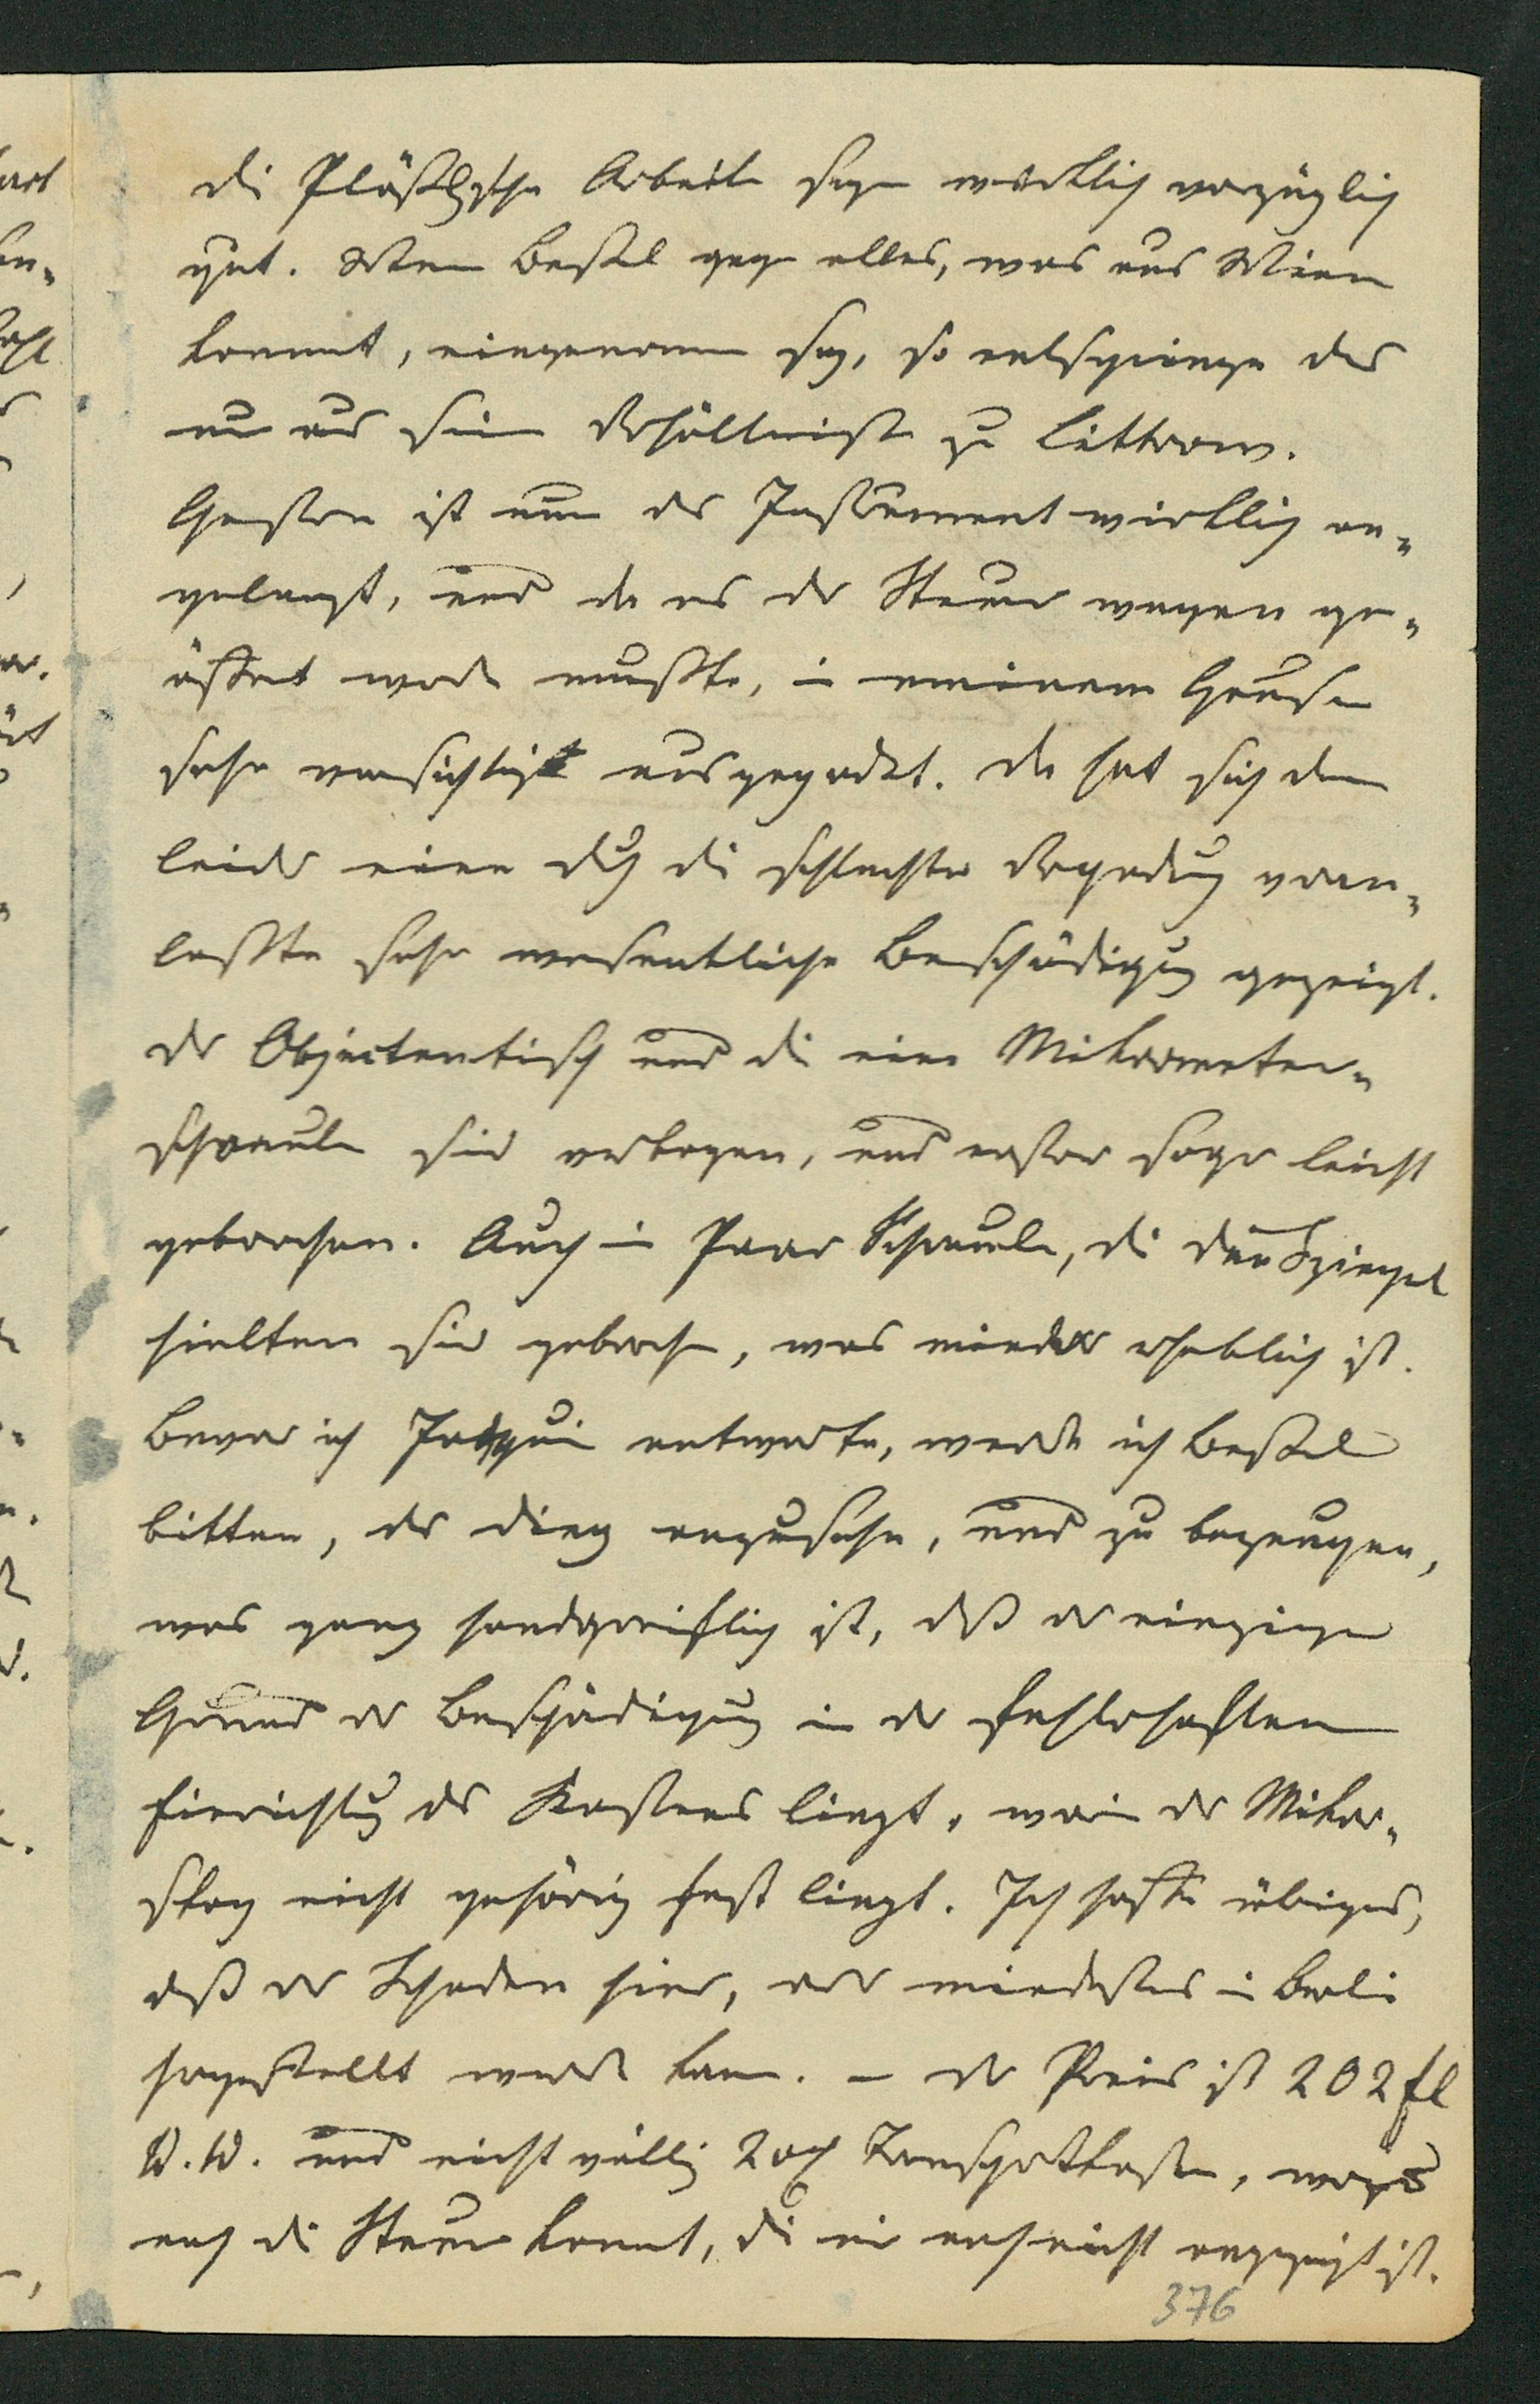 die Plößlsche Arbeiten seyn wirklich vorzüglich
gut. Wenn Bessel gegen alles, was aus Wien
kommt, eingenommen sey, so entspringe das
nur aus seinem Verhältnisse zu Littrow.
Gestern ist nun das Instrument wirklich an-
gelangt, und da es der Steuer wegen ge-
öffnet werden mußte, in meinem Hause
sehr vorsichtig ausgepackt. Da hat sich denn
leider eine durch die schlechte Verpackung veran-
laßte sehr wesentliche Beschädigung gezeigt.
Der Objectentisch und die eine Mikrometer-
schraube sind verbogen, und erster sogar leicht
gebrochen. Auch ein Paar Schrauben, die den Spiegel
hielten sind gebrochen, was minder erheblich ist.
Bevor ich Jacquin antworte, werde ich Bessel
bitten, das Ding anzusehen, und zu bezeugen,
was ganz handgreiflich ist, daß der einzige
Grund der Beschädigung in der fehlerhaften
Einrichtung des Kastens liegt, worin das Mikro-
skop nicht gehörig fest liegt. Ich hoffe übrigens,
daß der Schaden hier, oder mindestens in Berlin
hergestellt werden kann. – Der Preis ist 202 fl
W. W. und nicht völlig 20 Transportkosten, wozu
noch die Steuer kommt, die mir noch nicht angezeigt ist.
376